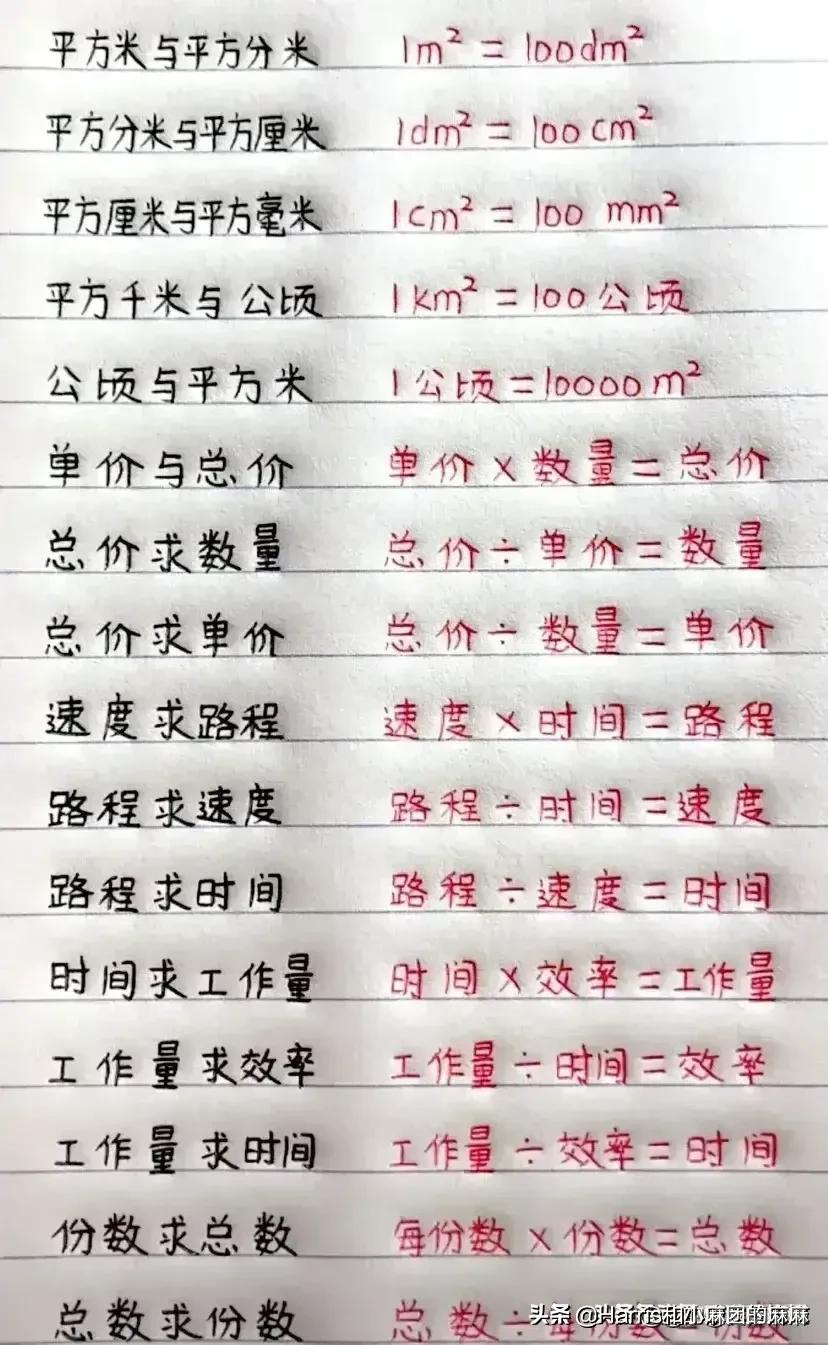 平方米与平方分米 1m² = 100dm²
平方分米与平方厘米 1dm² = 100cm²
平方厘米与平方毫米 1cm² = 100 mm²
平方千米与公顷 1km² = 100公顷
公顷与平方米 1公顷=10000m²
单价与总价 单价×数量=总价
总价求数量 总价÷单价=数量
总价求单价 总价÷数量=单价
速度求路程 速度×时间=路程
路程求速度 路程÷时间=速度
路程求时间 路程÷速度=时间
时间求工作量 时间×效率=工作量
工作量求效率 工作量÷时间=效率
工作量求时间 工作量÷效率=时间
份数求总数 每份数×份数=总数
总数求份数 总数÷每份数=份数
头条 @Harris和小麻团的麻麻